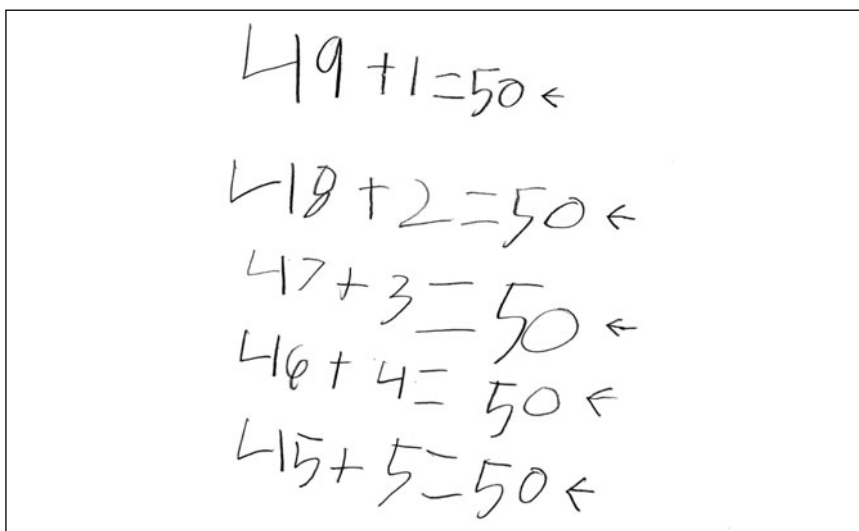 49+1=50 ←
48+2=50 ←
47+3=50 ←
46+4=50 ←
45+5=50 ←